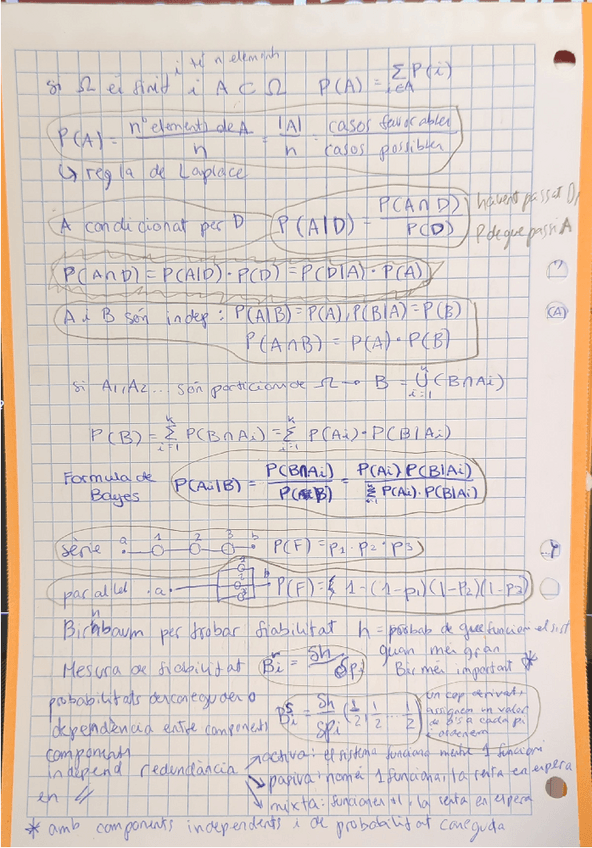 i té n elements
si Ω és finit i A ⊂ Ω P(A) = Σ P(i)
i∈A
P(A) = nº elements de A / n = |A| / n = casos favorables / casos possibles
↳ regla de Laplace
A condicionat per D P(A|D) = P(A∩D) / P(D) havent passat D,
P de que passi A
P(A∩D) = P(A|D) · P(D) = P(D|A) · P(A)
A i B són indep: P(A|B) = P(A), P(B|A) = P(B)
P(A∩B) = P(A) · P(B)
si A1, A2 ... són particions de Ω → B = ∪ᵏᵢ₌₁ (B∩Ai)
P(B) = Σᵏᵢ₌₁ P(B∩Ai) = Σᵏᵢ₌₁ P(Ai) · P(B|Ai)
Formula de Bayes P(Ai|B) = P(B∩Ai) / P(B) = P(Ai) P(B|Ai) / Σ P(Ai) · P(B|Ai)
sèrie a 1 2 3 b P(F) = p1 · p2 · p3
paral·lel a 1 2 3 b P(F) = 1 - (1-p1)(1-p2)(1-p3)
Birnbaum per trobar fiabilitat h = probab de que funcioni el sist
Mesura de fiabilitat Biⁿ = δh / δpi quan més gran
Bi més important *
probabilitats desconegudes o
dependència entre components Biˢ = δh / δpi (1/2, 1/2 ... 1/2) un cop derivat,
assignem un valor
de 0's a cada pi
i ordenem
components
independ redundància → activa: el sistema funciona mentre 1 funcioni
→ pasiva: només 1 funciona, la resta en espera
en // → mixta: funcionen i la resta en espera
* amb components independents i de probabilitat coneguda